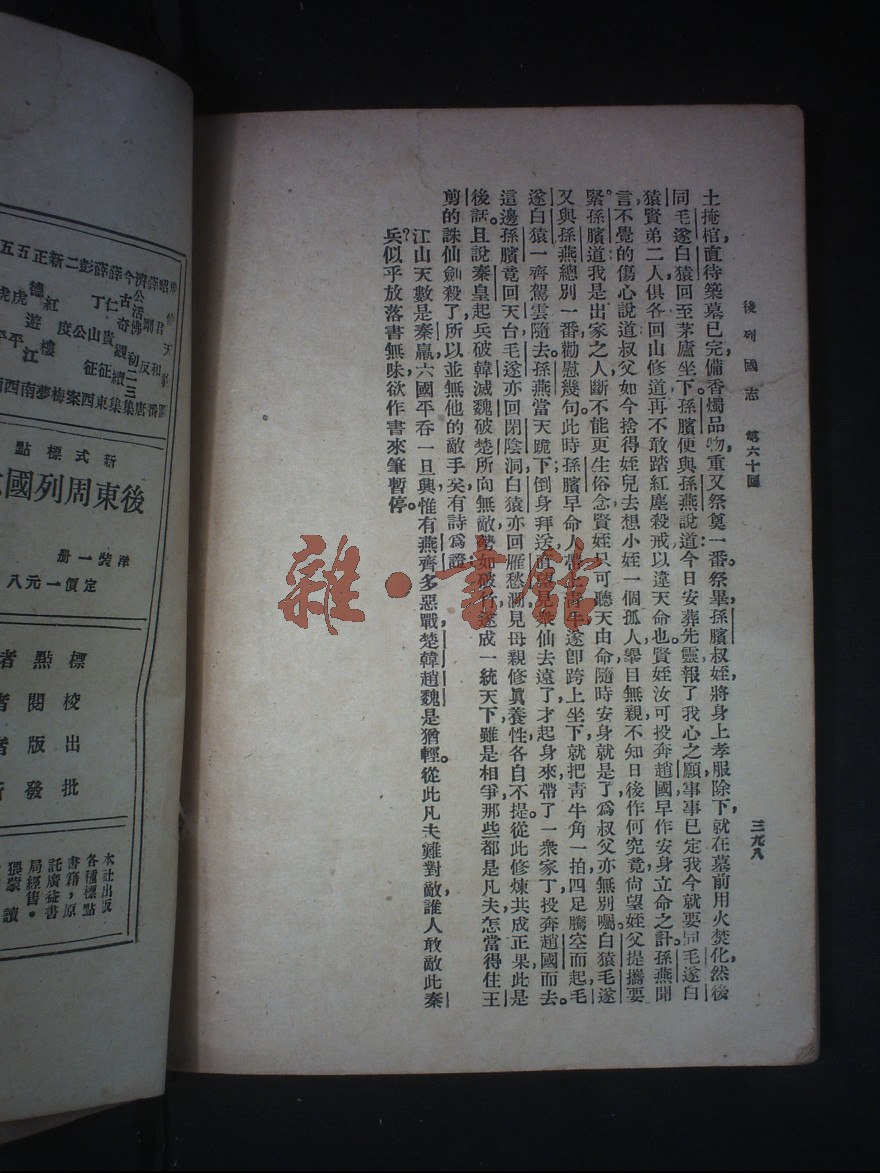 後列國志 第六十回
三九八
土掩棺,直待築墓已完備香燭品物,重又祭奠一番。祭畢,孫臏叔姪,將身上孝服除下,就在墓前用火焚化,然後
同毛遂白猿回至茅廬坐下。孫臏便與孫燕說道:今日安葬先靈,報了我心之願,事事已定,我今就要同毛遂白
猿賢弟二人,俱各回山修道,再不敢踏紅塵殺戒,以違天命也。賢姪汝可投奔趙國,早作安身立命之計。孫燕聞
言,不覺的傷心,說道:叔父如今捨得姪兒去,想小姪一個孤人,舉目無親,不知日後作何究竟,尙望姪父提攜要
緊。孫臏道:我是出家之人,斷不能更生俗念,賢姪只可聽天由命,隨時安身就是了,爲叔父亦無別囑。白猿毛遂
又與孫燕總別一番,勸慰幾句。此時孫臏早命人帶上青牛,遂卽跨上坐下,就把青牛角一拍,四足騰空而起,毛
遂白猿一齊駕雲隨去。孫燕當天跪下,倒身拜送,直望見衆仙去遠了,才起身來,帶了一衆家丁,投奔趙國而去。
這邊孫臏竟回天台,毛遂亦回閉陰洞,白猿亦回雁愁澗,見母親修眞養性,各自不提。從此修煉,共成正果,此是
後話。且說秦皇起兵,破韓滅魏破楚,所向無敵,勢如破竹,遂成一統天下,雖是相爭,那些都是凡夫,怎當得住王
剪的誅仙劍殺了,所以並無他的敵手矣。有詩爲證:
江山天數是秦贏,六國平吞一旦興,惟有燕齊多惡戰,楚韓趙魏是猶輕。從此凡夫難對敵,誰人敢敵此秦
兵?似乎放落書無味,欲作書來筆暫停。
雜·書館
新式標點
後東周列國
洋裝一册
定價一元八
標點者
校閱者
出版者
批發
本社出版
各種標點
書籍,原
託廣益書
局經售。
猥蒙讀